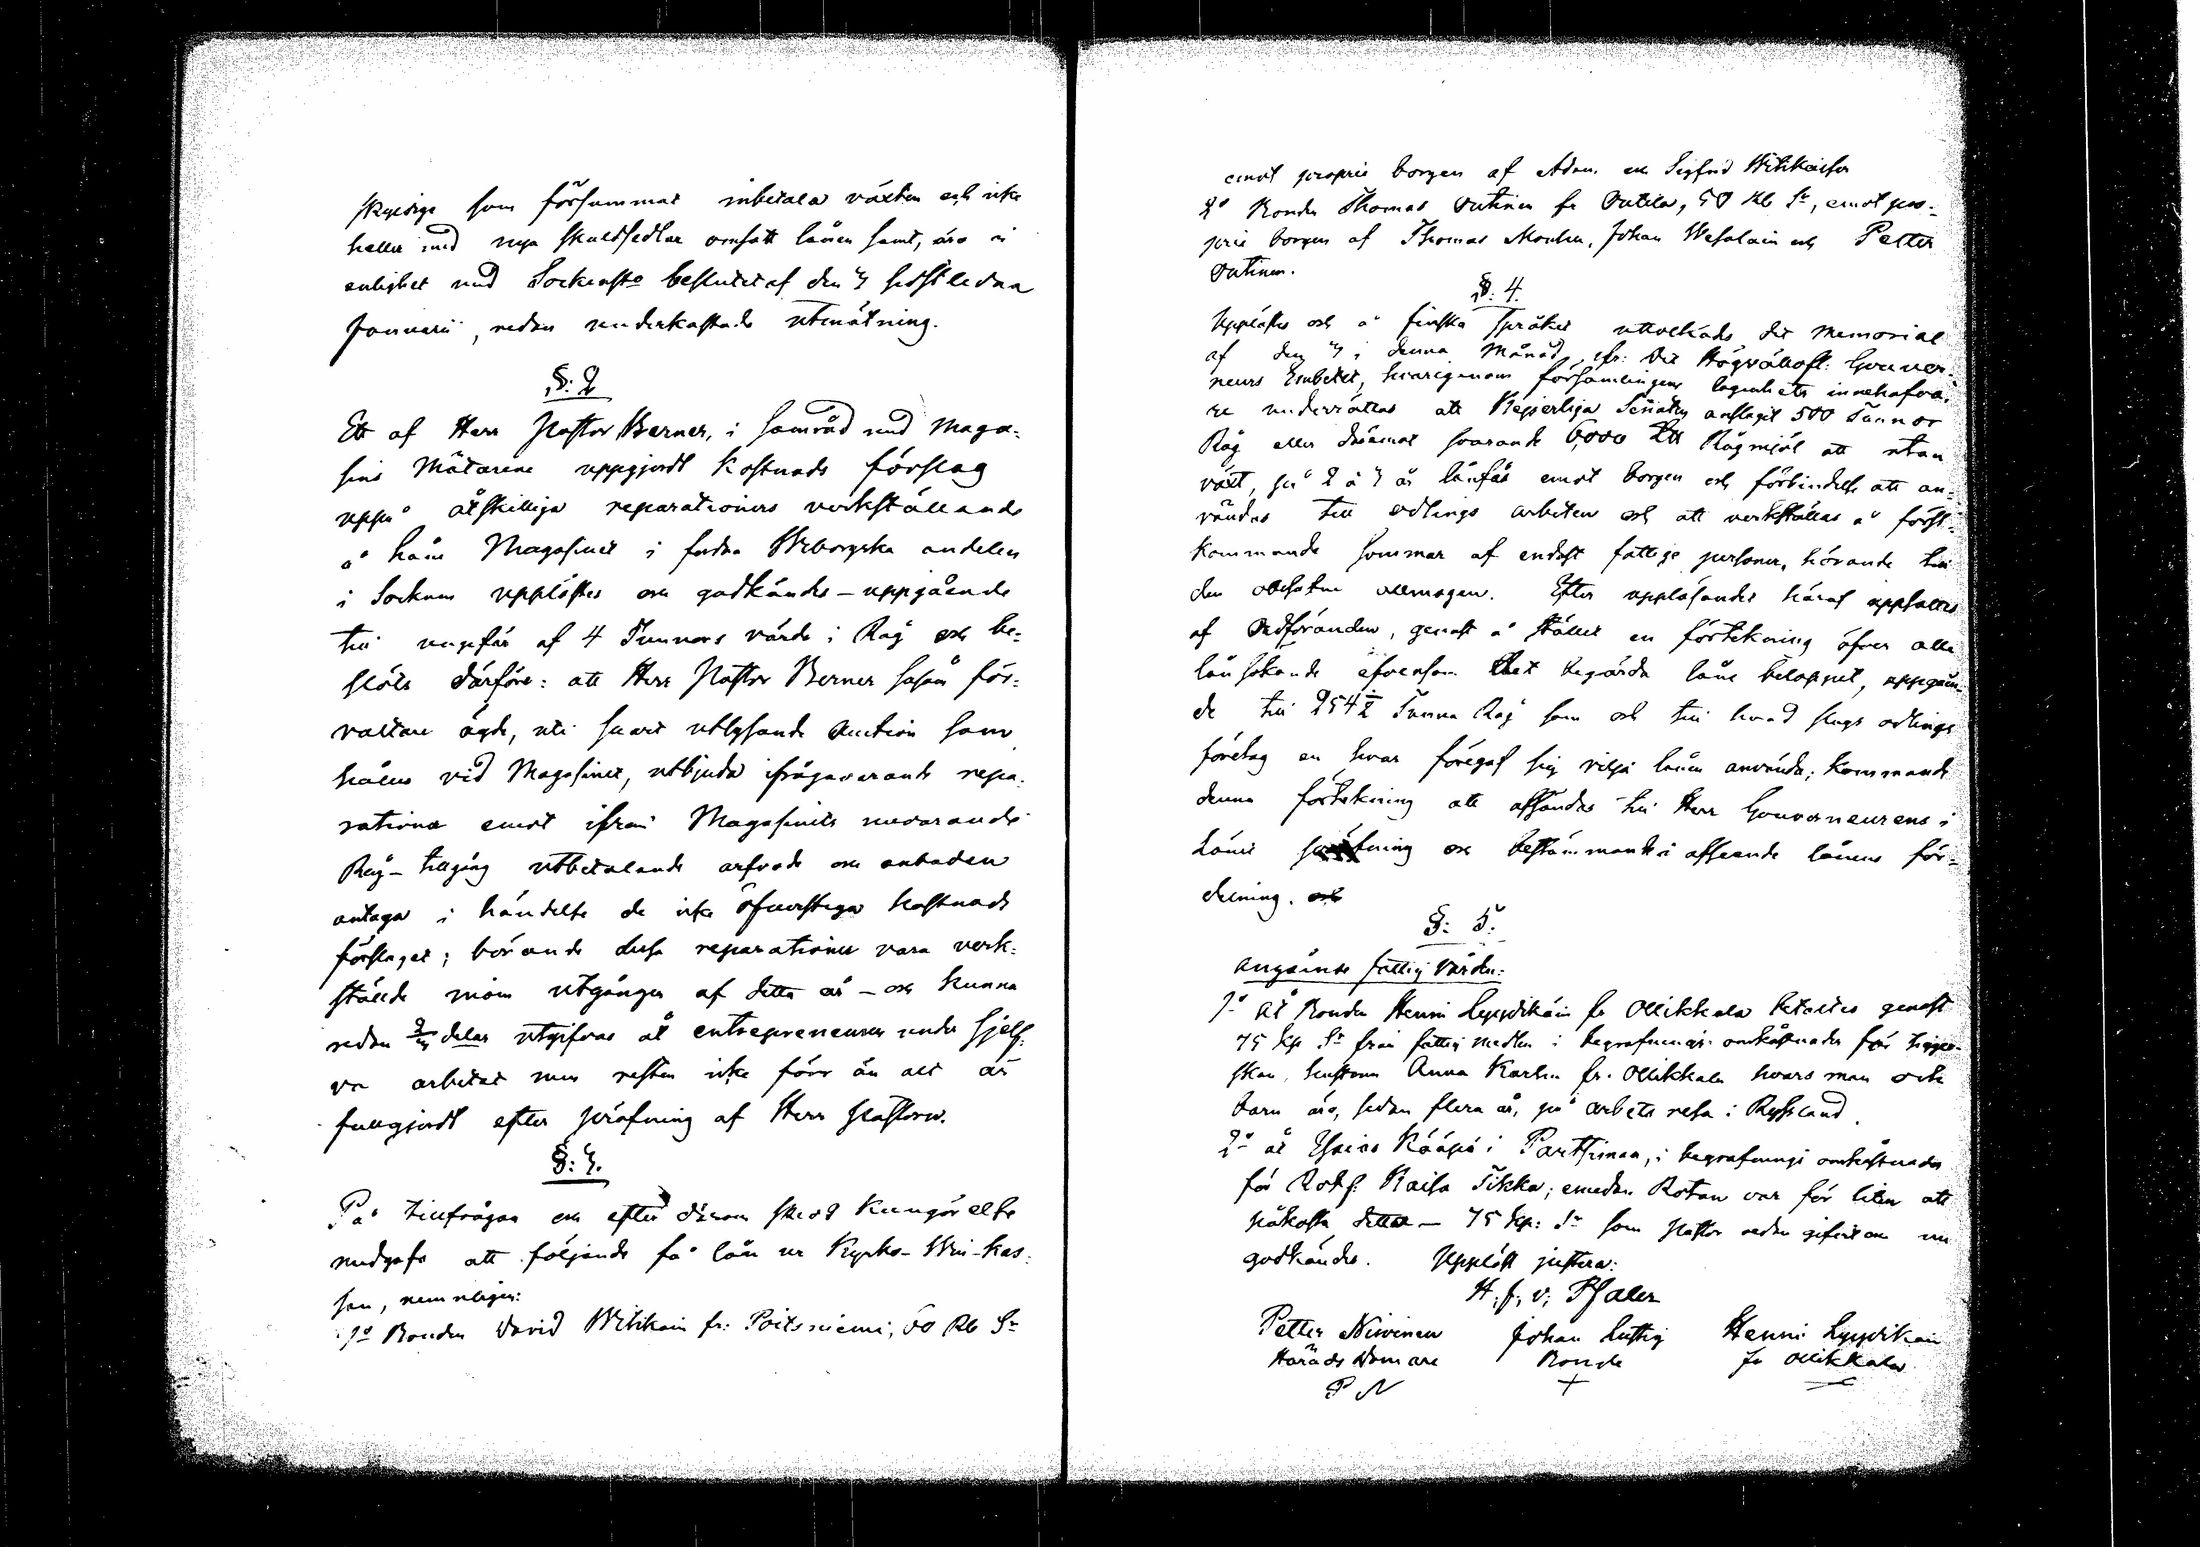 skyldige som försummat inbetala växten och icke
heller med nya skuldsedlar omsatt lånen samt, äro i
enlighet med Sockenste beslutet af den 3 sistledna
Januarii, redan underkastade utmätning.
§: 2
Ett af Herr Pastor Berner, i samråd med Maga-
sins Mätarene uppgjordt Kostnads förslag
uppå åtskilliga reparationers verkställande
å Låne Magasinet i fordna Wiborgska andelen
i Socknen upplästes och godkändes – uppgående
till ungefär af 4 Tunnors värde i Råg och be-
slöts därföre: att Herr Pastor Berner såsom för-
valtare ägde, uti snart utlysande Auction som
hålles vid Magasinet, utbjuda ifrågavarande repa-
rationa emot ifrån Magasinets nuvarande
Råg-tillgång utbetalande arfvode och anbuden
antaga i händelse de icke öfverstiga kostnads
förslaget; börande dessa reparationer vara verk-
stälde inom utgången af detta år – och kunna
redan 2/3 delar utgifvas åt entrepreneuren under sjelf-
va arbetet men resten icke förr än allt är
fullgjordt efter pröfning af Herr Pastorn.
§: 3.
På tillfrågan och efter därom skedd Kungörelse
medgafs att följande få lån ur Kyrko-Win-Kas-
san, nemnligen:
1o Bonden David Wilikain fr: Poitsniemi, 60 Rb Sr
emot proprie borgen af Adam och Sigfrid Wilikaiser
2o Bonden Thomas Outinen fr Outila, 50 Rb Sr, emot pro-
prie borgen af Thomas Monten, Johan Wesalain och Petter
Outinen.
§: 4.
Upplästes och å finska språket uttolkades det Memorial
af den 3 i denna Månad, fr: Det Högvällofl: Gouver-
neurs Embetet, hvarigenom församlingens lägenhets innehafva-
re underrättas att Kejserliga Senaten anslagit 500 Tunnor
Råg eller däremot svarande 6,000 L℔ Rågmjöl att utan
växt, på 2 à 3 år lånfås emot borgen och förbindelse att an-
vändas till odlings arbeten och att verkställas å först-
kommande sommar af endast fattige personer, hörande till
den obesutna allmogen. Efter uppläsandet häraf uppsattes
af Ordföranden, genast å stället en förtekning öfver alla
lånsökande äfvensom det begärda låne beloppet, uppgåen-
de till 254½ Tunna Råg som och till hvad slags odlings
företag en hvar föregaf sig vilja lånen använda; kommande
denna förtekning att afsändas till Herr Gouverneurens i
Länet pröfning och bestämmande i afseende lånens för-
delning. och
§: 5.
Angående fattig Vården:
1o Åt Bonden Henri Lyydikäin fr Ollikkala betaltes genast
75 kp Sr från fattig medlen i begrafnings omkåstnader för tigger-
skan, hustrun Anna Karhu fr. Ollikkala hvars man och
barn äro, sedan flera år, på arbets resa i Ryssland.
2o åt Esaias Kääpä i Partsimaa, i begrafnings omkåstnader
för Rotf: Kaisa Tikka; emedan Rotan var för liten att
påkosta detta – 75 kp: Sr som Pastor redan gifvit och nu
godkändes. Uppläst justera:
H. f. v; Psaler
Petter Niirinen Johan Lustig Henri Lyydikäin
Härads Domare Bonde fr Ollikkala
P N +